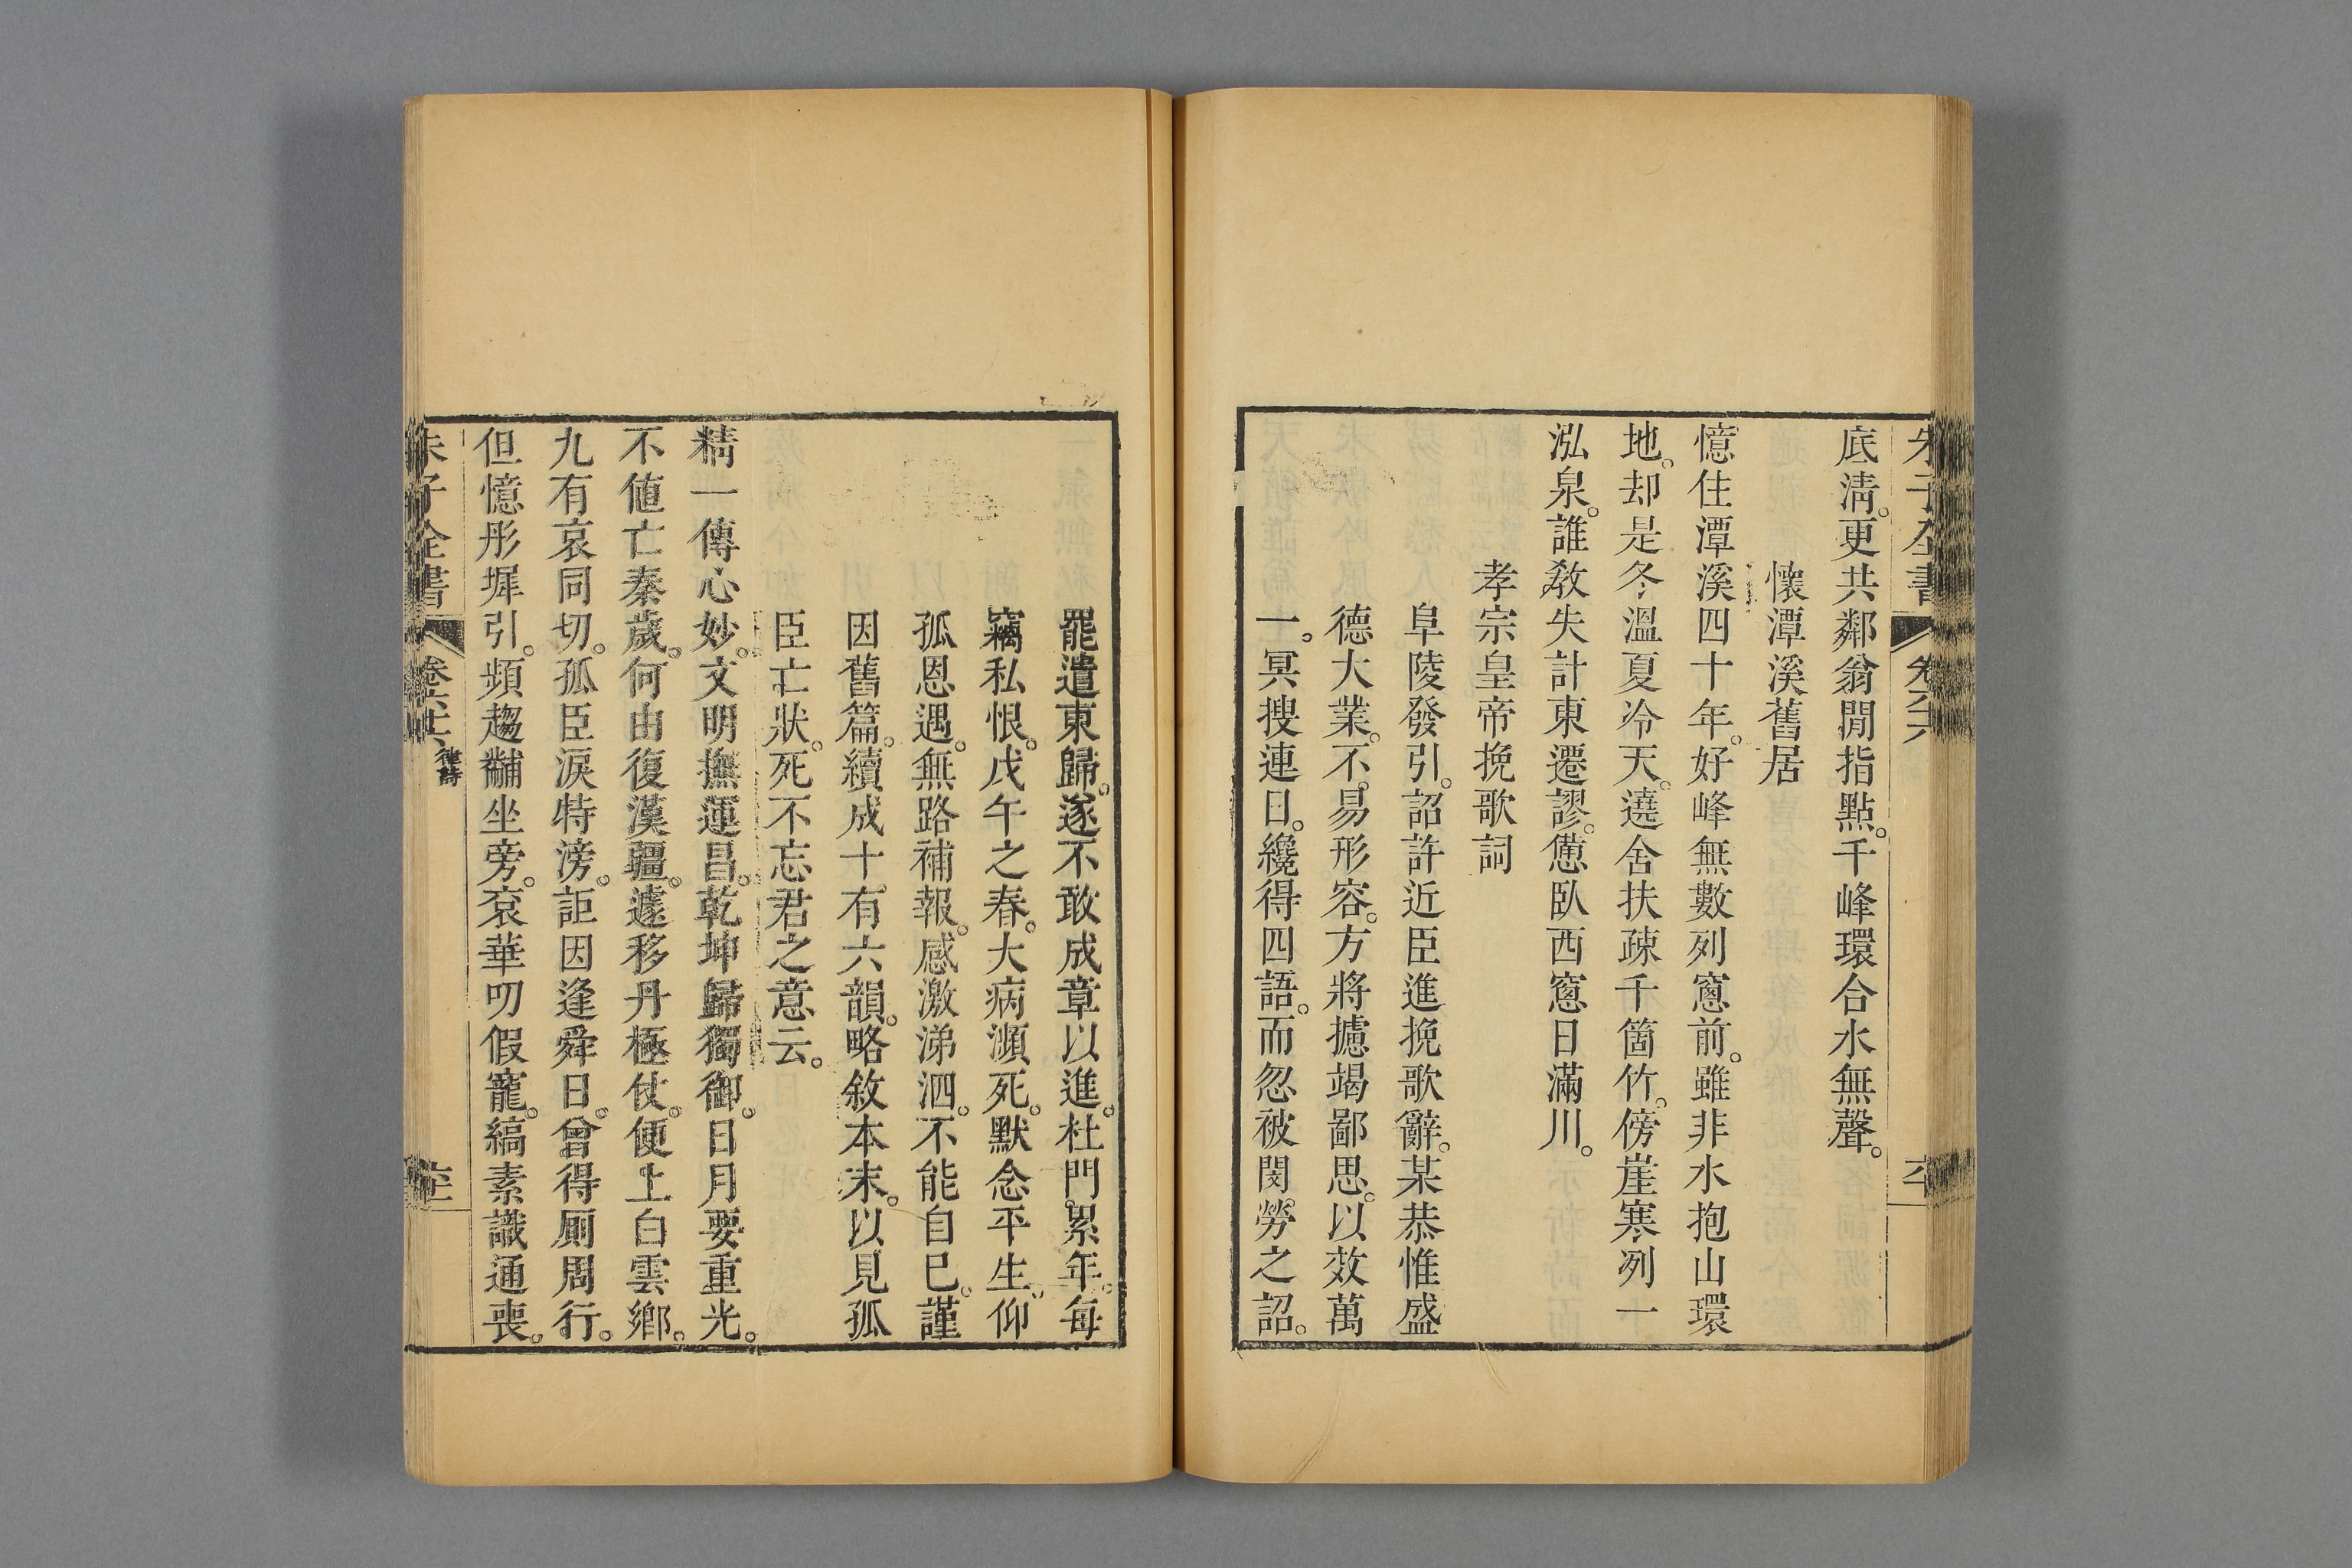 朱子全書 卷六十六
底淸。更共鄰翁閒指點。千峰環合水無聲。
懷潭溪舊居
憶住潭溪四十年。好峰無數列窻前。雖非水抱山環
地。却是冬溫夏冷天。遶舍扶疎千箇竹。傍崖寒冽一
泓泉。誰敎失計東遷謬。憊臥西窻日滿川。
孝宗皇帝挽歌詞
阜陵發引。詔許近臣進挽歌辭。某恭惟盛
德大業。不易形容。方將攄竭鄙思。以效萬
一。冥搜連日。纔得四語。而忽被閔勞之詔。
罷遣東歸。遂不敢成章以進。杜門累年。每
竊私恨。戊午之春。大病瀕死。默念平生。仰
孤恩遇。無路補報。感激涕泗。不能自已。謹
因舊篇。續成十有六韻。略敘本末。以見孤
臣亡狀。死不忘君之意云。
精一傳心妙。文明撫運昌。乾坤歸獨御。日月要重光。
不値亡秦歲。何由復漢疆。遽移丹極仗。便上白雲鄕。
九有哀同切。孤臣淚特滂。詎因逢舜日。曾得厠周行。
但憶彤墀引。頻趨黼坐旁。袞華叨假寵。縞素識通喪。
朱子全書 卷六十六 律詩